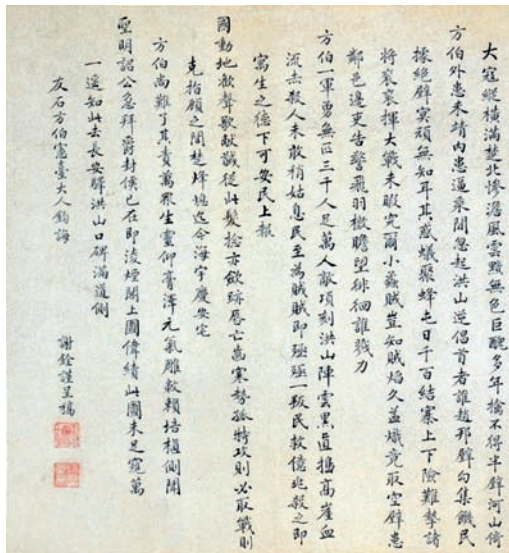 大寇縱橫滿楚北慘澹風雲黯無色巨醜多年擒不得半壁河山倚
方伯外患未靖內患逼乘間忽起洪山逆倡首者誰趙邦璧勾集饑民
據絕壁冥頑無知耳其惑蟻聚蜂屯日千百結寨上下險難擊諸
將袞袞揮大戟未暇究爾小蟊賊豈知賊焰久益熾竟取空壁患
鄰邑邊吏告警飛羽檄瞻望徘徊誰戮力
方伯一軍勇無匹三千人足萬人敵頃刻洪山陣雲黑直搗高崖血
流赤殺人未敢稍姑息民至為賊賊即殛殛一叛民救億兆殺之即
寓生之德下可安民上報
國動地歡聲歌献馘從此髮捻亦斂跡唇亡齒寒勢孤特攻則必取戰則
克指顧之間楚烽熄迄今海宇慶安宅
方伯尚難了其責萬眾生靈仰膏澤元氣雕敝賴培植側聞
聖明詔公急拜爵封侯已在即淩煙閣上圖偉績此圖未足窺萬
一遥知此去長安驛洪山口碑滿道側
灰石方伯憲臺大人鈞誨
謝銓謹呈稿